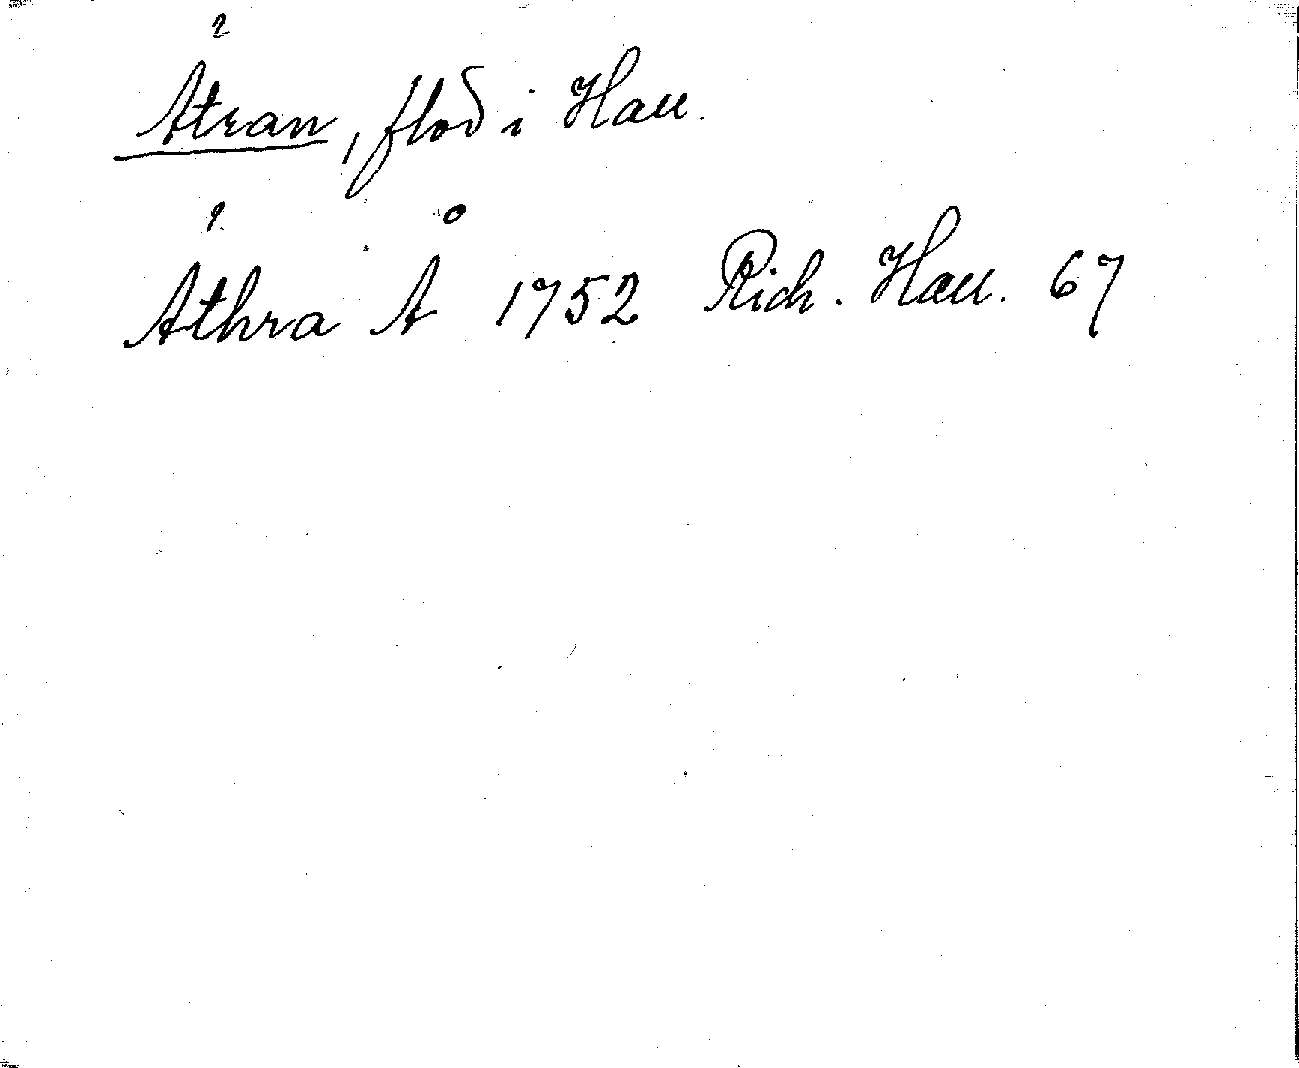 Ätran, flod i Hall.
Äthra Å 1752 Rich. Hall. 67